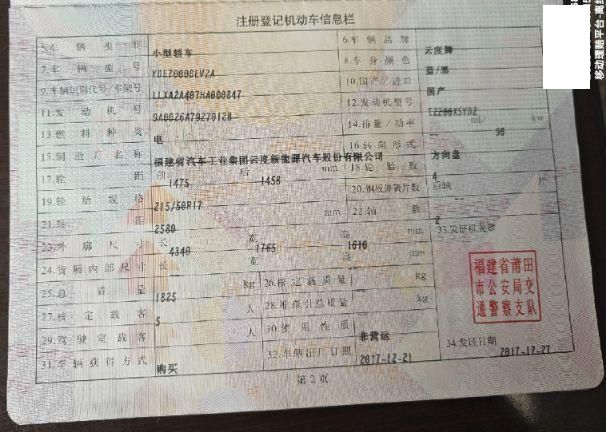 注册登记机动车信息栏
5.车辆类型 小型轿车 6.车辆品牌 云度牌
7.车辆型号 YDE7000BEV2A 8.车身颜色 蓝/黑
9.车辆识别代号/车架号 LLXA2A407HA000847 10.国产/进口 国产
11.发动机号 12.发动机型号 TZ200XSYD2
13.燃料种类 电 14.排量/功率 ml/ 90 kw
15.制造厂名称 福建省汽车工业集团云度新能源汽车股份有限公司 16.转向形式 方向盘
17.轮距 前 1475 后 1458 mm 18.轮胎数 4
19.轮胎规格 215/50R17 20.钢板弹簧片数 后轴 片
21.轴距 2580 mm 22.轴数 2
23.外廓尺寸 长 4340 宽 1765 高 1610 mm 33.发证机关章
24.货厢内部尺寸 长 宽 高 mm
25.总质量 1825 kg 26.核定载质量 kg
27.核定载客 5 人 28.准牵引总质量 kg
29.驾驶室载客 人 30.使用性质 非营运
31.车辆获得方式 购买 32.车辆出厂日期 2017-12-21 34.发证日期 2017-12-27
福建省莆田
市公安局交
通警察支队
第2页